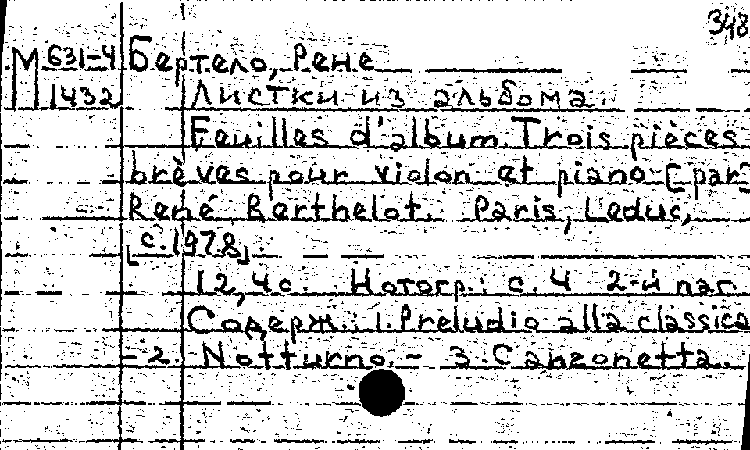 348
М 631-4 Бертело, Рене
1432 Листки из альбома.
Feuilles d'album. Trois pièces
brèves pour violon et piano [par]
René Berthelot. Paris, Leduc,
[c.1978].
12, 4 с. Нотогр.: с. 4 2-й паг.
Содерж.: 1. Preludio alla classica
- 2. Notturno. - 3. Canzonetta.